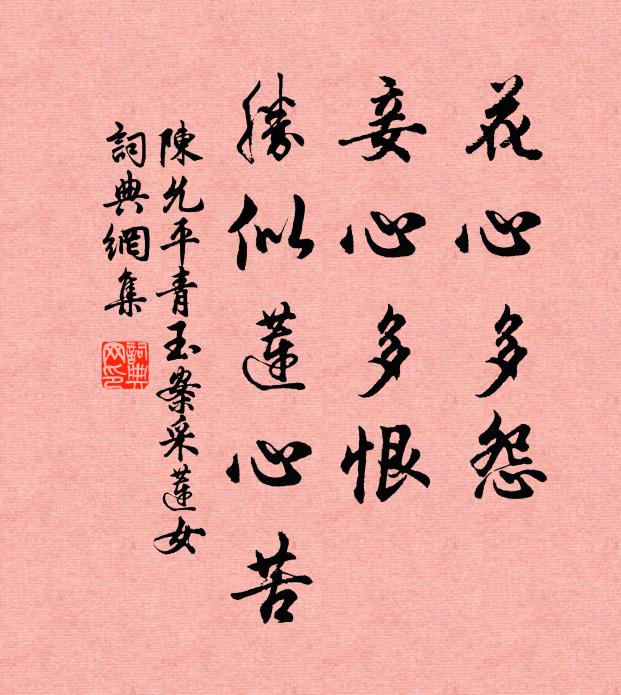 花心多怨
妾心多恨
勝似蓮心苦
陳允平青玉案采蓮女
詞典網集
詞典
网印